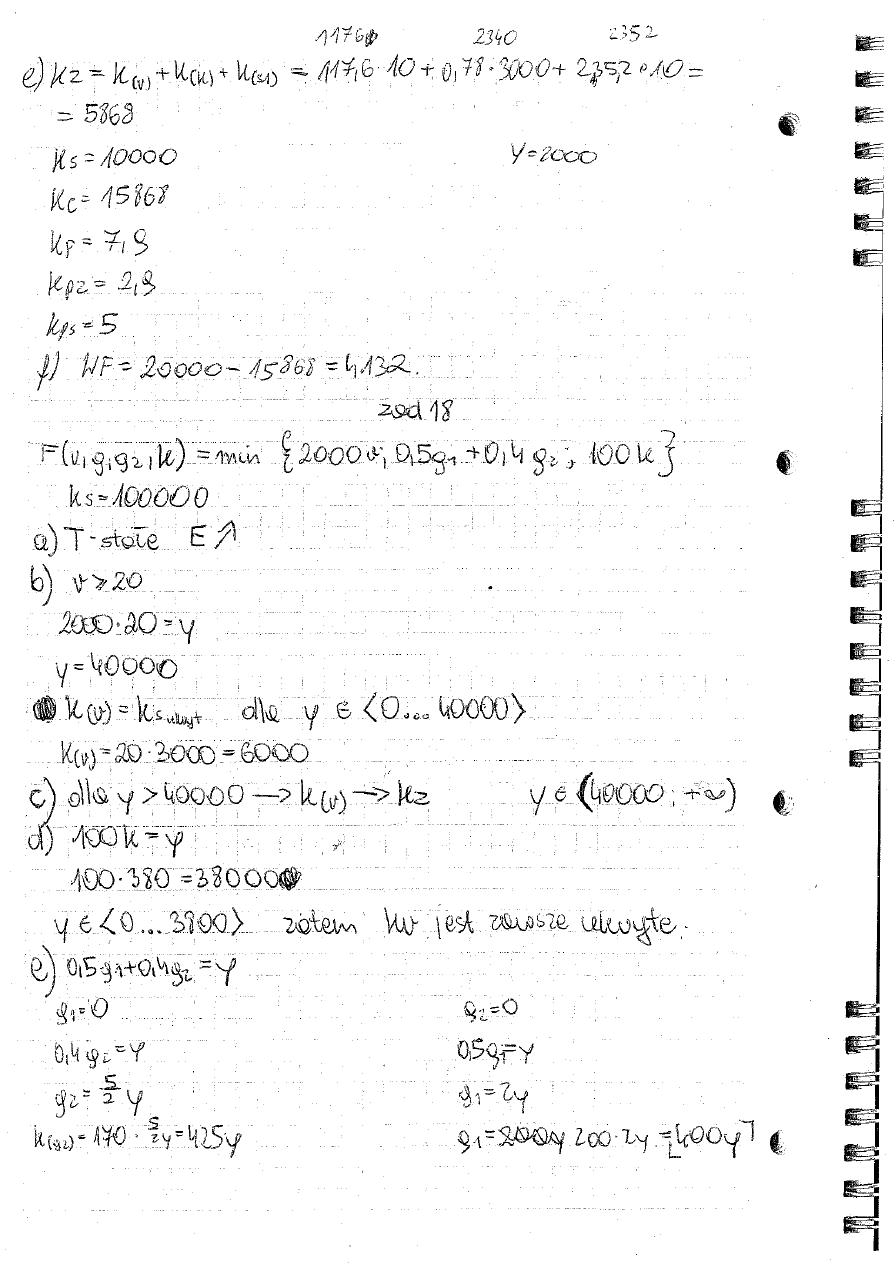 1176 2340 2352
e) Kz = K(v) + K(k) + K(s1) = 117,6·10 + 0,78·3000 + 235,2·10 =
= 5868
Ks = 10000 Y = 2000
Kc = 15868
Kp = 7,9
Kpz = 2,9
Kps = 5
f) WF = 20000 - 15868 = 4132.
zad 18
F(v, g1 g2, k) = min {2000v, 0,5g1 + 0,4 g2, 100k}
Ks = 100000
a) T-stałe E ↗
b) v ≥ 20
2000·20 = y
y = 40000
K(v) = Ks ukryt dla y ∈ <0...40000>
K(v) = 20·3000 = 6000
c) dla y > 40000 → K(v) → Kz y ∈ (40000; +∞)
d) 100k = y
100·380 = 38000
y ∈ <0...3800> zatem kv jest zawsze ukryte.
e) 0,5g1 + 0,4g2 = y
g1 = 0 g2 = 0
0,4 g2 = y 0,5g1 = y
g2 = 5/2 y g1 = 2y
K(g2) = 170 · 5/2 y = 425y g1 = 200·2y = 400y